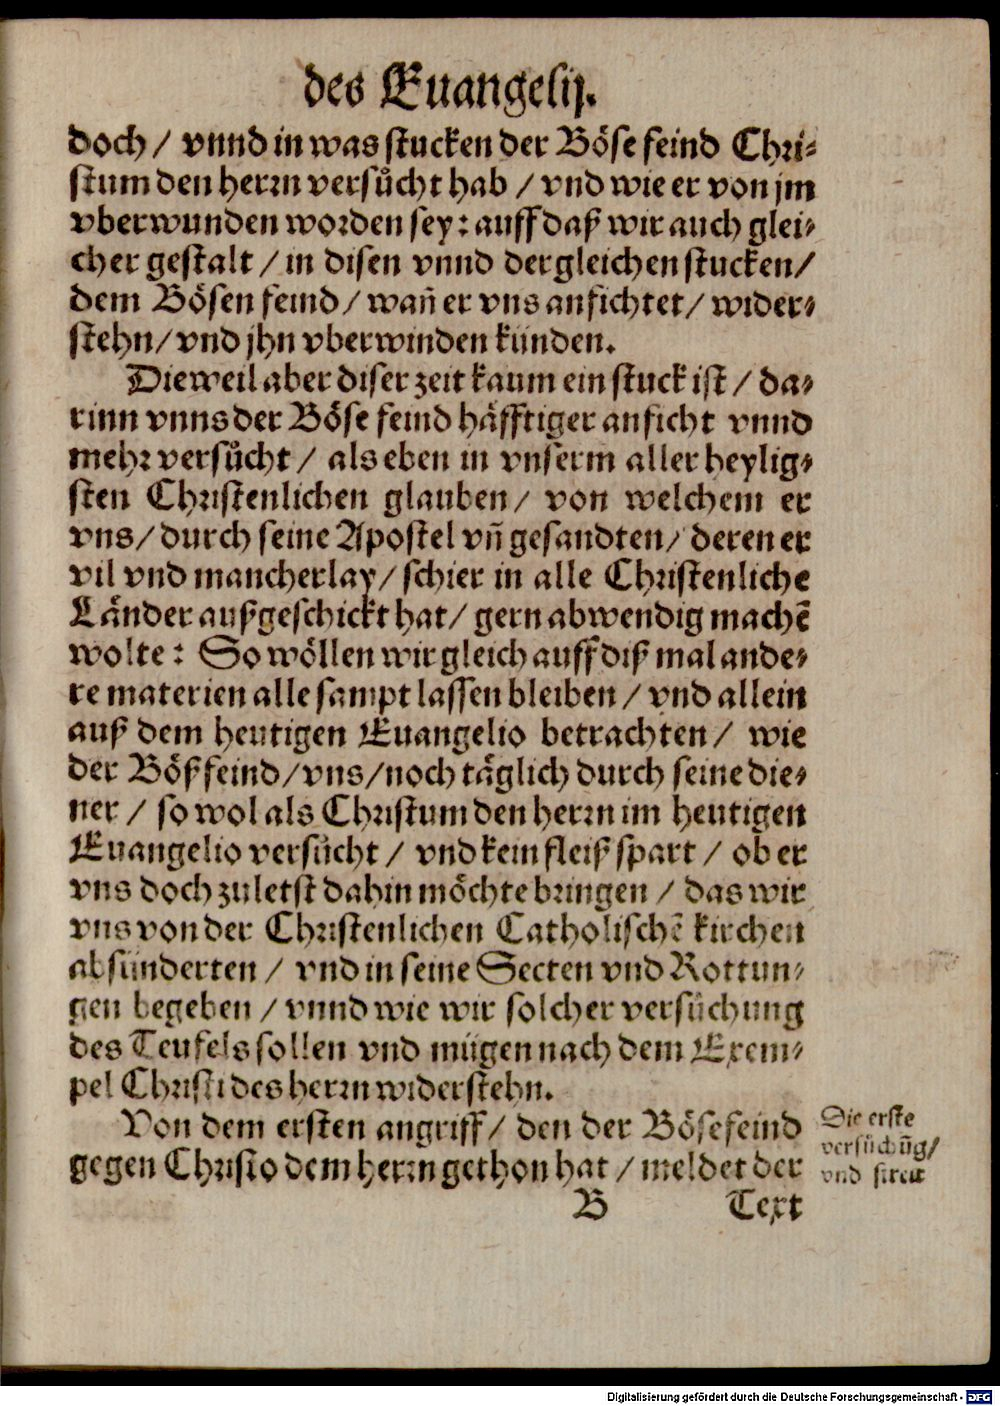 des Euangelij.
doch / vnnd in was stucken der Böse feind Chri-
stum den herrn versůcht hab / vnd wie er von jm
vberwunden worden sey: auff daß wir auch glei-
cher gestalt / in disen vnnd dergleichen stucken /
dem Bösen feind / wañ er vns anfichtet / wider-
stehn / vnd jhn vberwinden künden.
Dieweil aber diser zeit kaum ein stuck ist / da-
rinn vnns der Böse feind häfftiger anficht vnnd
mehr versůcht / als eben in vnserm aller heylig-
sten Christenlichen glauben / von welchem er
vns / durch seine Apostel vñ gesandten / deren er
vil vnd mancherlay / schier in alle Christenliche
Länder außgeschickt hat / gern abwendig machẽ
wolte: So wöllen wir gleich auff diß mal ande-
re materien alle sampt lassen bleiben / vnd allein
auß dem heutigen Euangelio betrachten / wie
der Böß feind / vns / noch täglich durch seine die-
ner / so wol als Christum den herrn im heutigen
Euangelio versůcht / vnd kein fleiß spart / ob er
vns doch zuletst dahin möchte bringen / das wir
vns von der Christenlichen Catholischẽ kirchen
absünderten / vnd in seine Secten vnd Rottun-
gen begeben / vnnd wie wir solcher versůchung
des Teufels sollen vnd mügen nach dem Exem-
pel Christi des herrn widerstehn.
Von dem ersten angriff / den der Böse feind
gegen Christo dem herrn gethon hat / meldet der
Die erste
versůchũg /
vnd streit
B Text
Digitalisierung gefördert durch die Deutsche Forschungsgemeinschaft - DFG